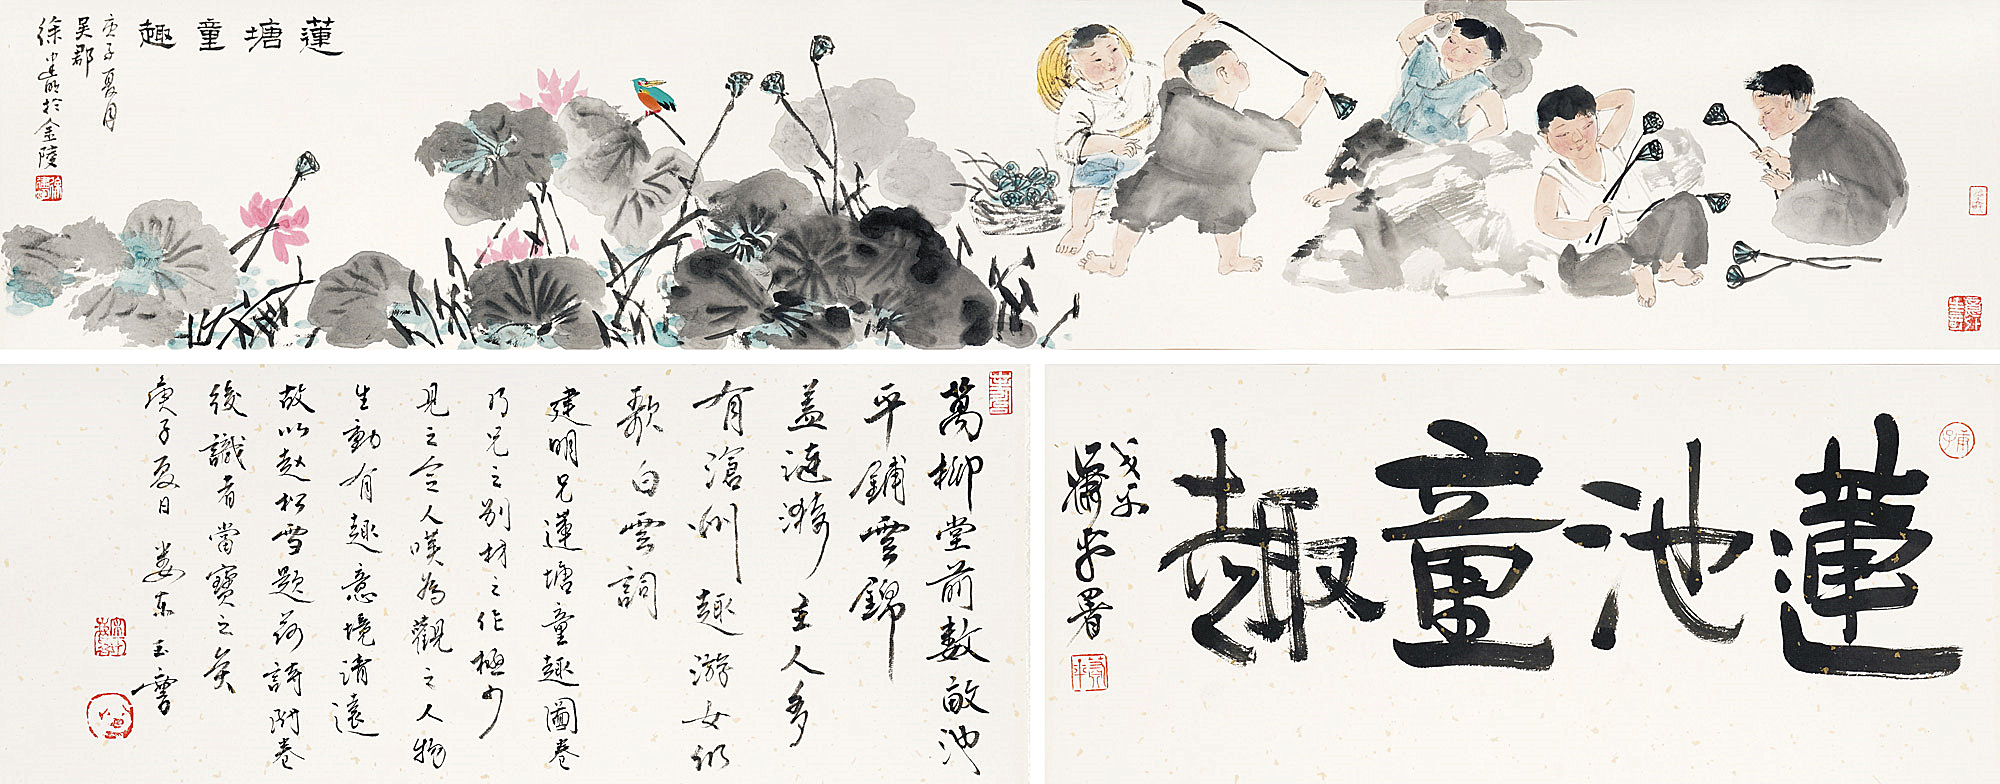 蓮塘童趣
庚子夏月
吴郡
徐建明於金陵
蓮池童趣
蕭平署
萬柳堂前數畝池
平鋪雲錦
蓋漣漪主人多
有滄洲趣游女仍
歌白雲詞
建明兄蓮塘童趣圖卷
乃兄之别材之作極少
見之令人嘆為觀之人物
生動有趣意境清遠
故以趙松雪題荷詩附卷
後識者當寶之矣
庚子夏日婁東